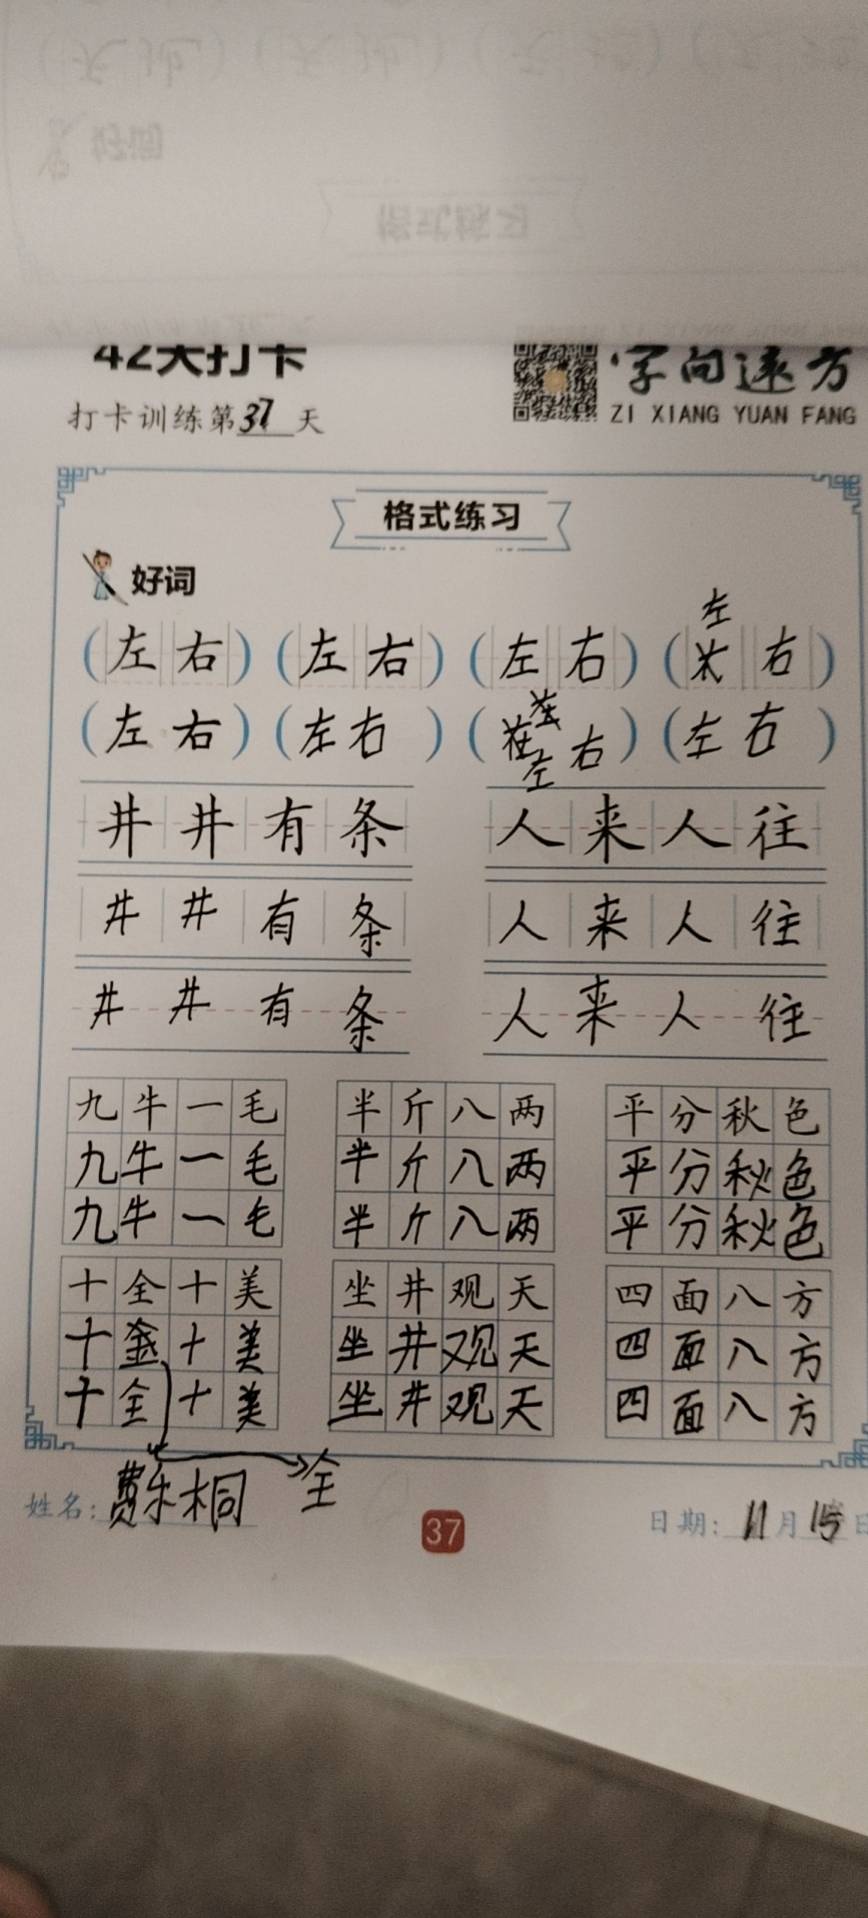 42天打卡
字向远方
打卡训练第37天
ZI XIANG YUAN FANG
格式练习
好词
左
(左右)(左右)(左右)(右)
(左右)(左右)(左右)(左右)
井井有条 人来人往
井井有条 人来人往
井井有条 人来人往
九牛一毛 半斤八两 平分秋色
九牛一毛 半斤八两 平分秋色
九牛一毛 半斤八两 平分秋色
十全十美 坐井观天 四面八方
十十美 坐井观天 四面八方
十全十美 坐井观天 四面八方
全
姓名: 桐
37
日期: 11月15日